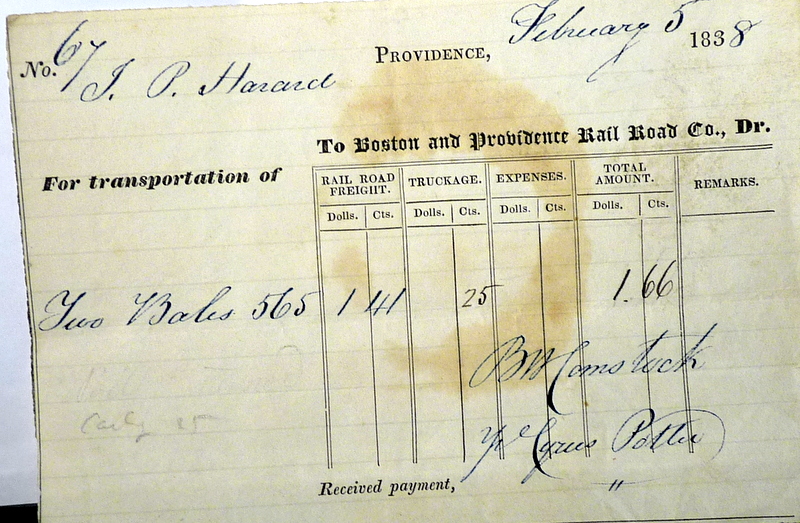 February 5
No. 67
PROVIDENCE, 1838
I. P. Hazard
To Boston and Providence Rail Road Co., Dr.
For transportation of
RAIL ROAD FREIGHT. TRUCKAGE. EXPENSES. TOTAL AMOUNT. REMARKS.
Dolls. Cts. Dolls. Cts. Dolls. Cts. Dolls. Cts.
Two Bales 565 1 41 25 1.66
B W Comstock
Cyrus Potter
Received payment, "